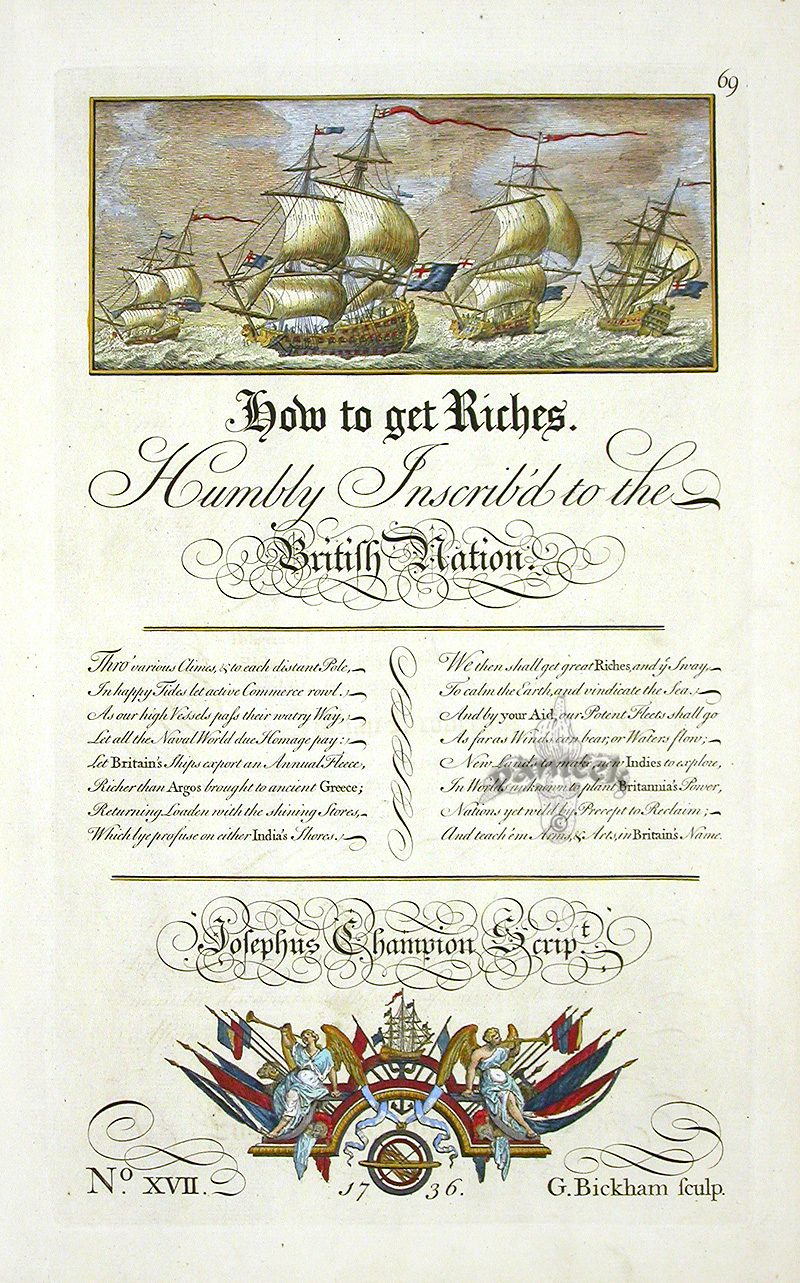 69
How to get Riches.
Humbly Inscrib'd to the
British Nation.
Thro' various Climes, & to each distant Pole,
In happy Tides let active Commerce rowl:
As our high Vessels pass their watry Way,
Let all the Naval World due Homage pay:
Let Britain's Ships export an Annual Fleece,
Richer than Argos brought to ancient Greece;
Returning Loaden with the shining Stores,
Which lye profuse on either India's Shores.
We then shall get great Riches, and ye Sway,
To calm the Earth, and vindicate the Sea.
And by your Aid, our Potent Fleets shall go
As far as Winds can bear, or Waters flow;
New Lands to make, new Indies to explore,
In Worlds unknown to plant Britannia's Power,
Nations yet wild by Precept to Reclaim;
And teach 'em Arms, & Arts, in Britain's Name.
panteek
©
Josephus Champion Script.
No. XVII.
1736.
G. Bickham sculp.